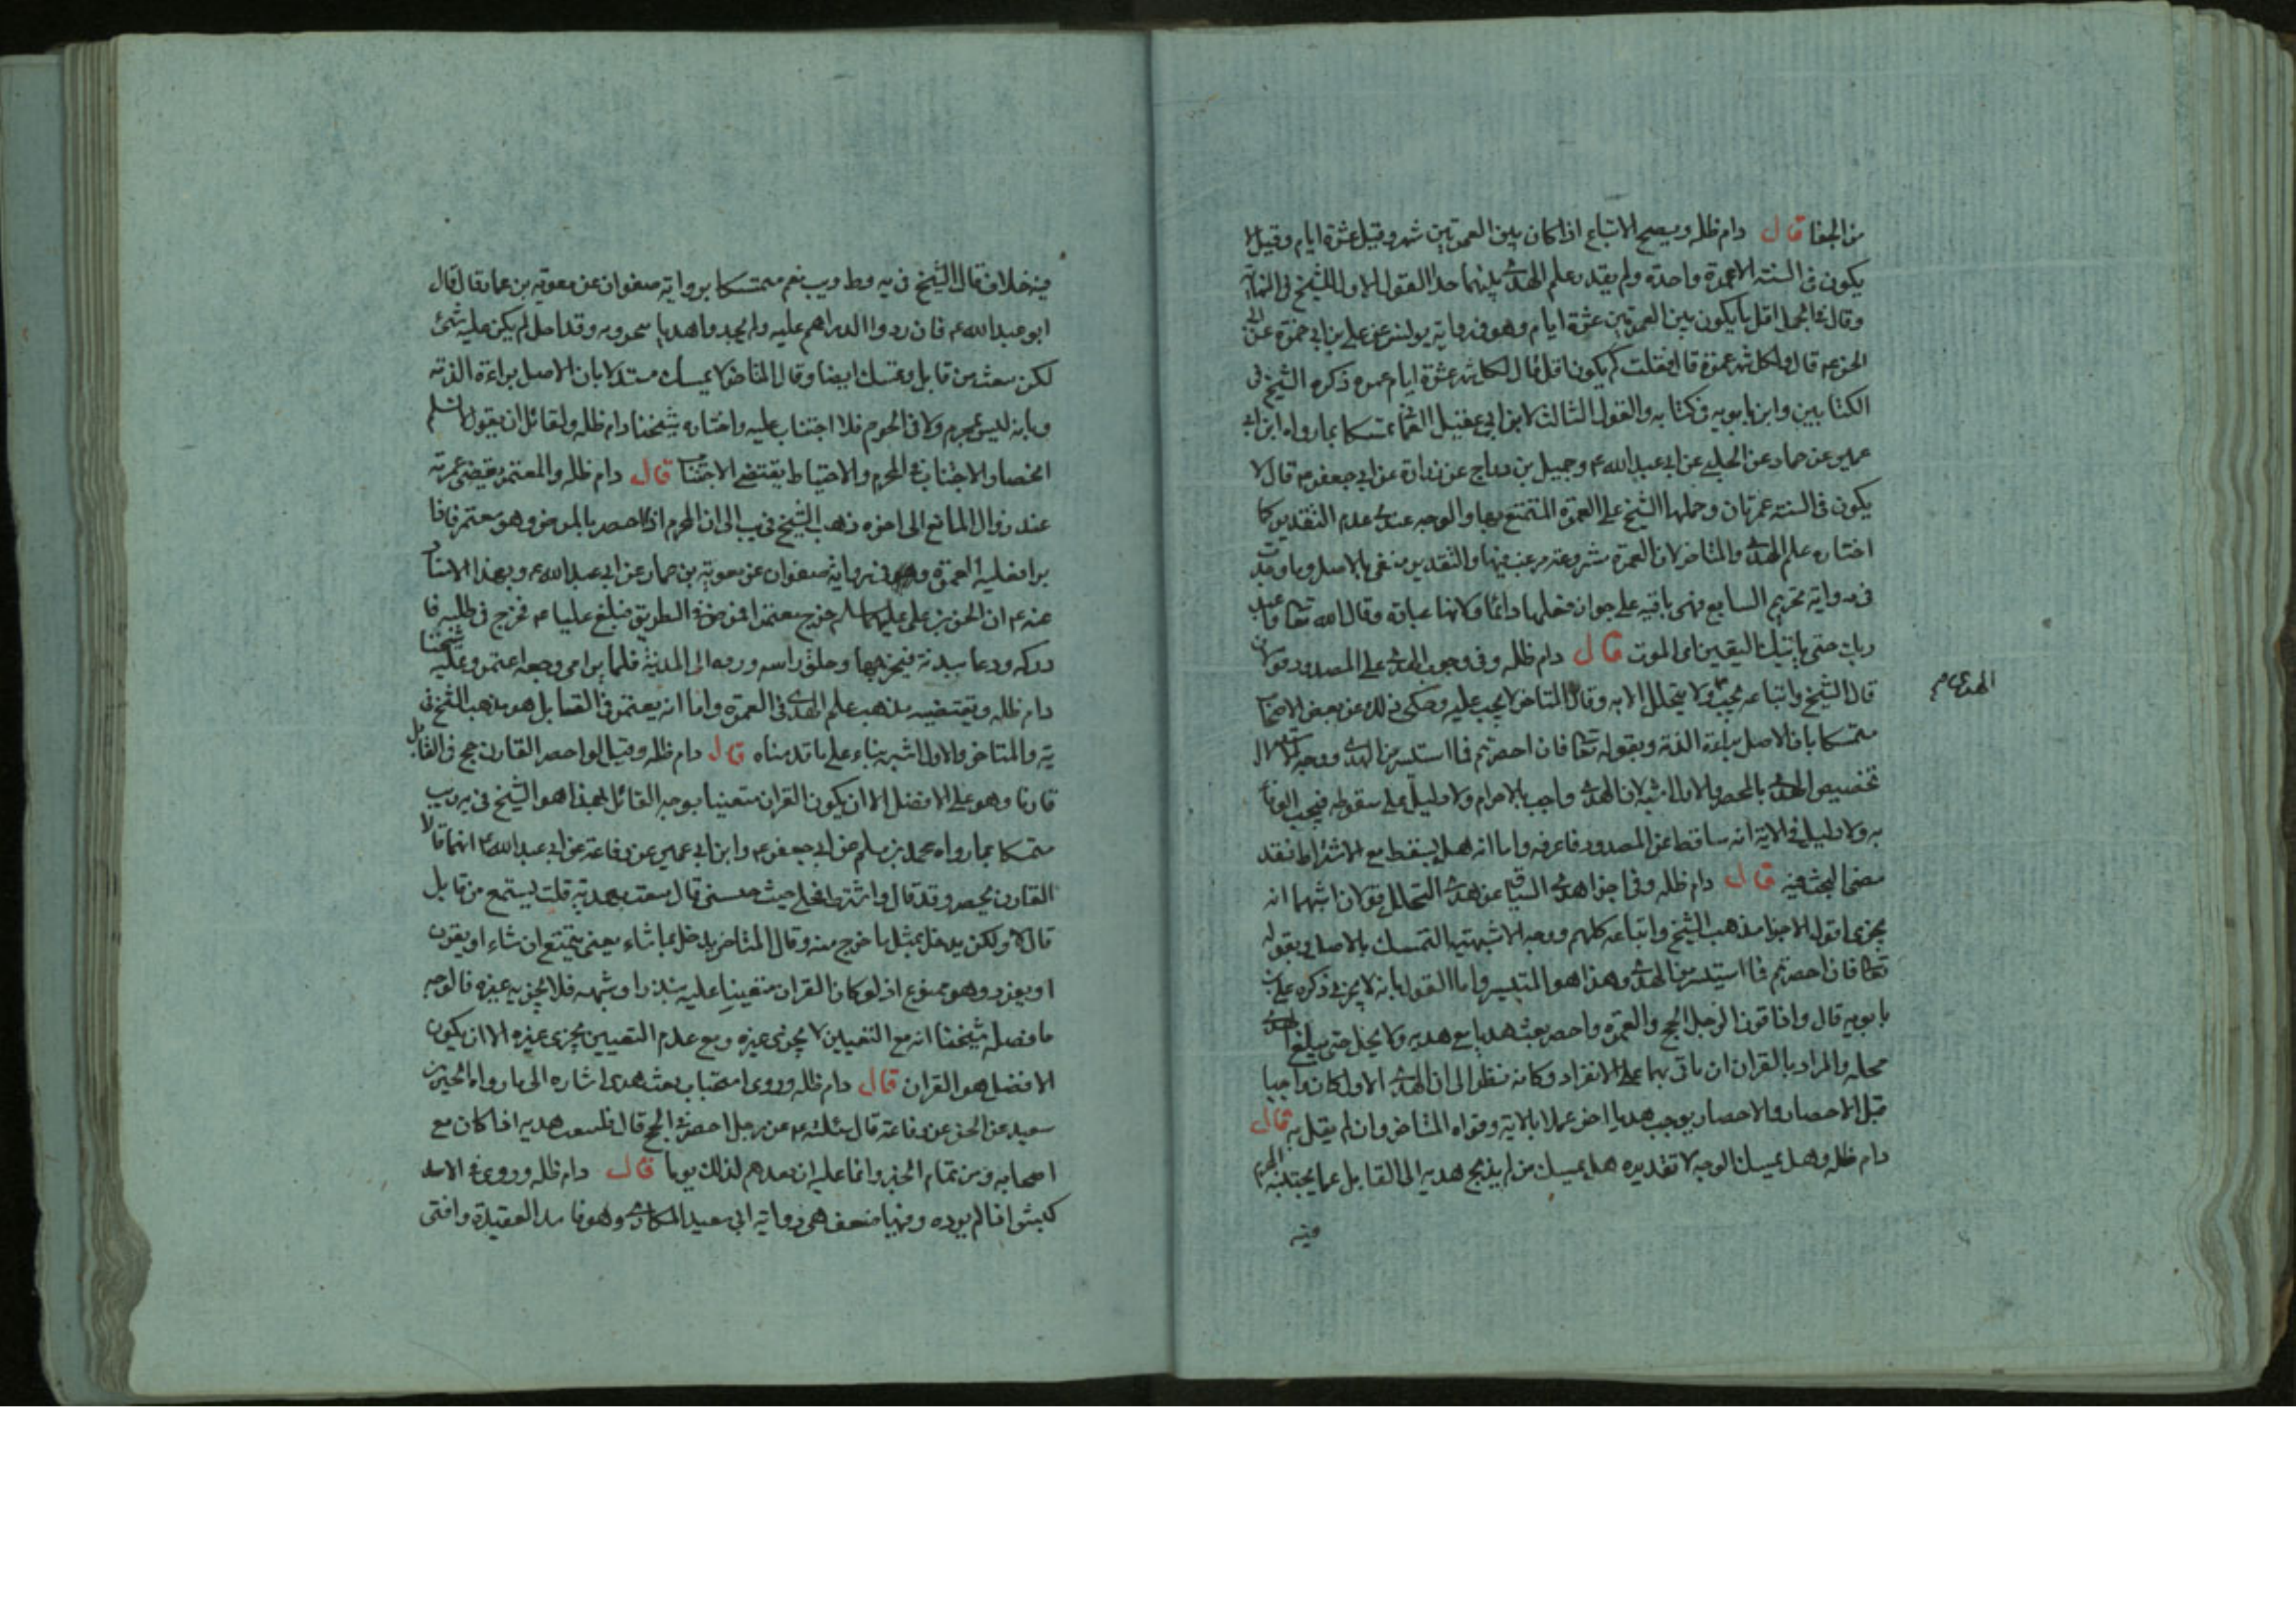 من الجفا قال دام ظله ويصح الاتباع اذا كان بين العمرتين شهر وقيل عشرة ايام وقيل لا
يكون في السنة الا عمرة واحدة ولم يقدر علم الهدى بينهما حدا القول الاول للشيخ في النهاية
وقال في الجمل اقل ما يكون بين العمرتين عشرة ايام وهو في رواية يونس عن علي بن ابي حمزة عن ابي
الحسن ع قال ولكل شهر عمرة قال فقلت كم يكون اقل قال لكل شهر عشرة ايام عمرة ذكره الشيخ في
الكتابين وابن بابويه في كتابه والقول الثالث لابن ابي عقيل العماني متمسكا بما رواه ابن ابي
عمير عن حماد عن الحلبي عن ابي عبد الله ع وجميل بن دراج عن زرارة عن ابي جعفر ع قال لا
يكون في السنة عمرتان وحملها الشيخ على العمرة المتمتع بها والوجه عندي عدم التقدير كما
اختاره علم الهدى والمتاخر لان العمرة مشروعة مرغب فيها والتقدير منفي بالاصل وما وقت
في رواية تحريم السابع فهي باقية على جواز فعلها دائما ولانها عبادة وقال الله تعالى واعبد
ربك حتى ياتيك اليقين اى الموت قال دام ظله وفي وجوب الهدى على المصدود قولان
قال الشيخ واتباعه يجب ولا يتحلل الا به وقال المتاخر لا يجب عليه وحكى ذلك عن بعض الاصحاب
متمسكا بان الاصل براءة الذمة وبقوله تعالى فان احصرتم فما استيسر من الهدى ووجه الاستدلال
تخصيص الهدى بالمحصر والاول اشبه لان الهدى واجب بالاحرام ولا دليل على سقوطه فيجب الوفاء
به ولا دليل في الاية انه ساقط عن المصدود فاعرفه واما انه هل يسقط مع الاشتراط فقد
مضى البحث فيه قال دام ظله وفي اجزا هدى السياق عن هدى التحلل قولان اشبههما انه
يجزى اقول الاجزا مذهب الشيخ واتباعه كلهم ووجه الاشبهية التمسك بالاصل وبقوله
تعالى فان احصرتم فما استيسر من الهدى وهذا هو المتيسر واما القول بانه لا يجزى ذكره علي بن
بابويه قال واذا قرن الرجل الحج والعمرة واحصر بعث هديا مع هديه ولا يحل حتى يبلغ الهدى
محله والمراد بالقران ان ياتى بهما على الانفراد وكانه نظر الى ان الهدى الاول كان واجبا
قبل الاحصار والاحصار يوجب هديا اخر عملا بالاية وقواه المتاخر وان لم يقل به قال
دام ظله وهل يمسك الوجه لا تقديره هل يمسك من لم يذبح هديه الى القابل عما يجتنبه المحرم
فيه
فيه خلاف قال الشيخ في يه وط ويب نعم متمسكا برواية صفوان عن معوية بن عمار قال قال
ابو عبد الله ع فان ردوا الدراهم عليه ولم يجدوا هديا ينحرونه وقد احل لم يكن عليه شئ
لكن يبعث من قابل ويمسك ايضا وقال المتاخر لا يمسك مستدلا بان الاصل براءة الذمة
وبانه ليس بمحرم ولا في الحرم فلا اجتناب عليه واختاره شيخنا دام ظله ولقائل ان يقول لا نسلم
انحصار الاجتناب في المحرم والاحتياط يقتضي الاجتناب قال دام ظله والمعتمر يقضى عمرته
عند زوال المانع الى اخره ذهب الشيخ في يب الى ان المحرم اذا احصر بالمرض وهو معتمر فاذا
برا فعليه العمرة وهو في رواية صفوان عن معوية بن عمار عن ابي عبد الله ع وبهذا الاسناد
عنه ع ان الحسين بن علي عليهما السلم خرج معتمرا فمرض في الطريق فبلغ عليا ع فخرج في طلبه فا
دركه ودعا ببدنة فنحرها وحلق راسه ورده الى المدينة فلما برا من وجعه اعتمر وعليه شيخنا
دام ظله ويقتضيه مذهب علم الهدى في العمرة واما انه يعتمر في القابل هو مذهب الشيخ في
يه والمتاخر والاول اشبه بناء على ما قدمناه قال دام ظله وقيل لو احصر القارن حج في القابل
قارنا وهو على الافضل الا ان يكون القران متعينا بوجه القائل بهذا هو الشيخ في يه ويب
متمسكا بما رواه محمد بن مسلم عن ابي جعفر ع وابن ابي عمير عن رفاعة عن ابي عبد الله ع انهما قالا
القارن يحصر وقد قال واشترط فحلي حيث حبستني قال يبعث بهديه قلت يستمتع من قابل
قال لا ولكن يدخل بمثل ما خرج منه وقال المتاخر يدخل بما شاء يعنى يتمتع ان شاء او يقرن
او يفرد وهو ممنوع اذ لو كان القران متعينا عليه بنذر او شبهه فلا يجزيه غيره فالوجه
ما فصله شيخنا انه مع التعيين لا يجزى غيره ومع عدم التعيين يجزى غيره الا ان يكون
الافضل هو القران قال دام ظله وروى استحباب بعث هدى اشاره الى ما رواه الحسين بن
سعيد عن الحسن عن رفاعة قال سئلته ع عن رجل احصر في الحج قال فليبعث بهديه اذا كان مع
اصحابه ومن تمام الخبر وانما عليه ان يعدهم لذلك يوما قال دام ظله وروى في الاسد
كبش اذا لم يرده وفيها ضعف هى رواية ابي سعيد المكارى وهو فاسد العقيدة وافتى
الهدى تمام